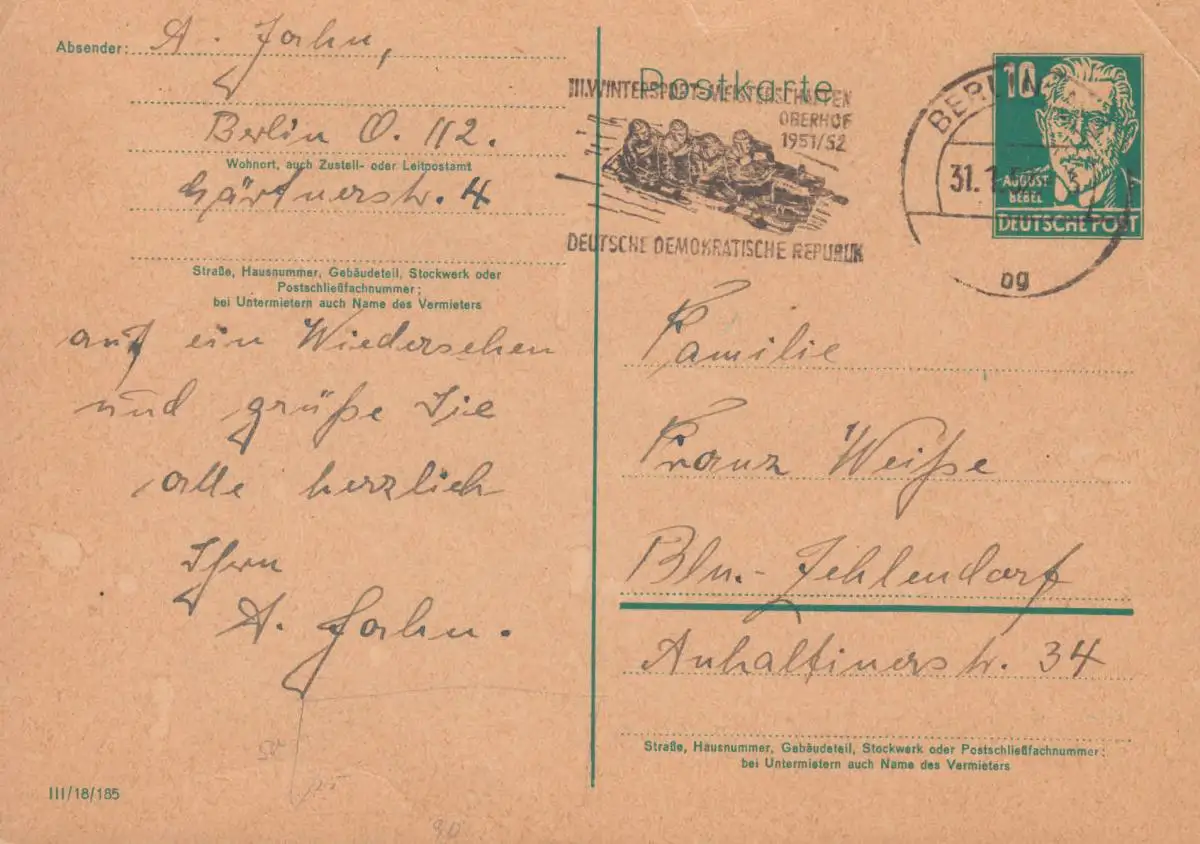 Absender: A. Jahn,
Berlin O. 112.
Wohnort, auch Zustell- oder Leitpostamt
Gärtnerstr. 4
Straße, Hausnummer, Gebäudeteil, Stockwerk oder
Postschließfachnummer;
bei Untermietern auch Name des Vermieters
auf ein Wiedersehen
und grüße Sie
alle herzlich
Ihr
A. Jahn.
III/18/185
Postkarte
III. WINTERSPORTMEISTERSCHAFTEN
OBERHOF
1951/52
DEUTSCHE DEMOKRATISCHE REPUBLIK
BERLIN
31. 1.
bg
10
AUGUST
BEBEL
DEUTSCHE POST
Familie
Franz Weiße
Bln.-Zehlendorf
Anhaltinerstr. 34
Straße, Hausnummer, Gebäudeteil, Stockwerk oder Postschließfachnummer;
bei Untermietern auch Name des Vermieters